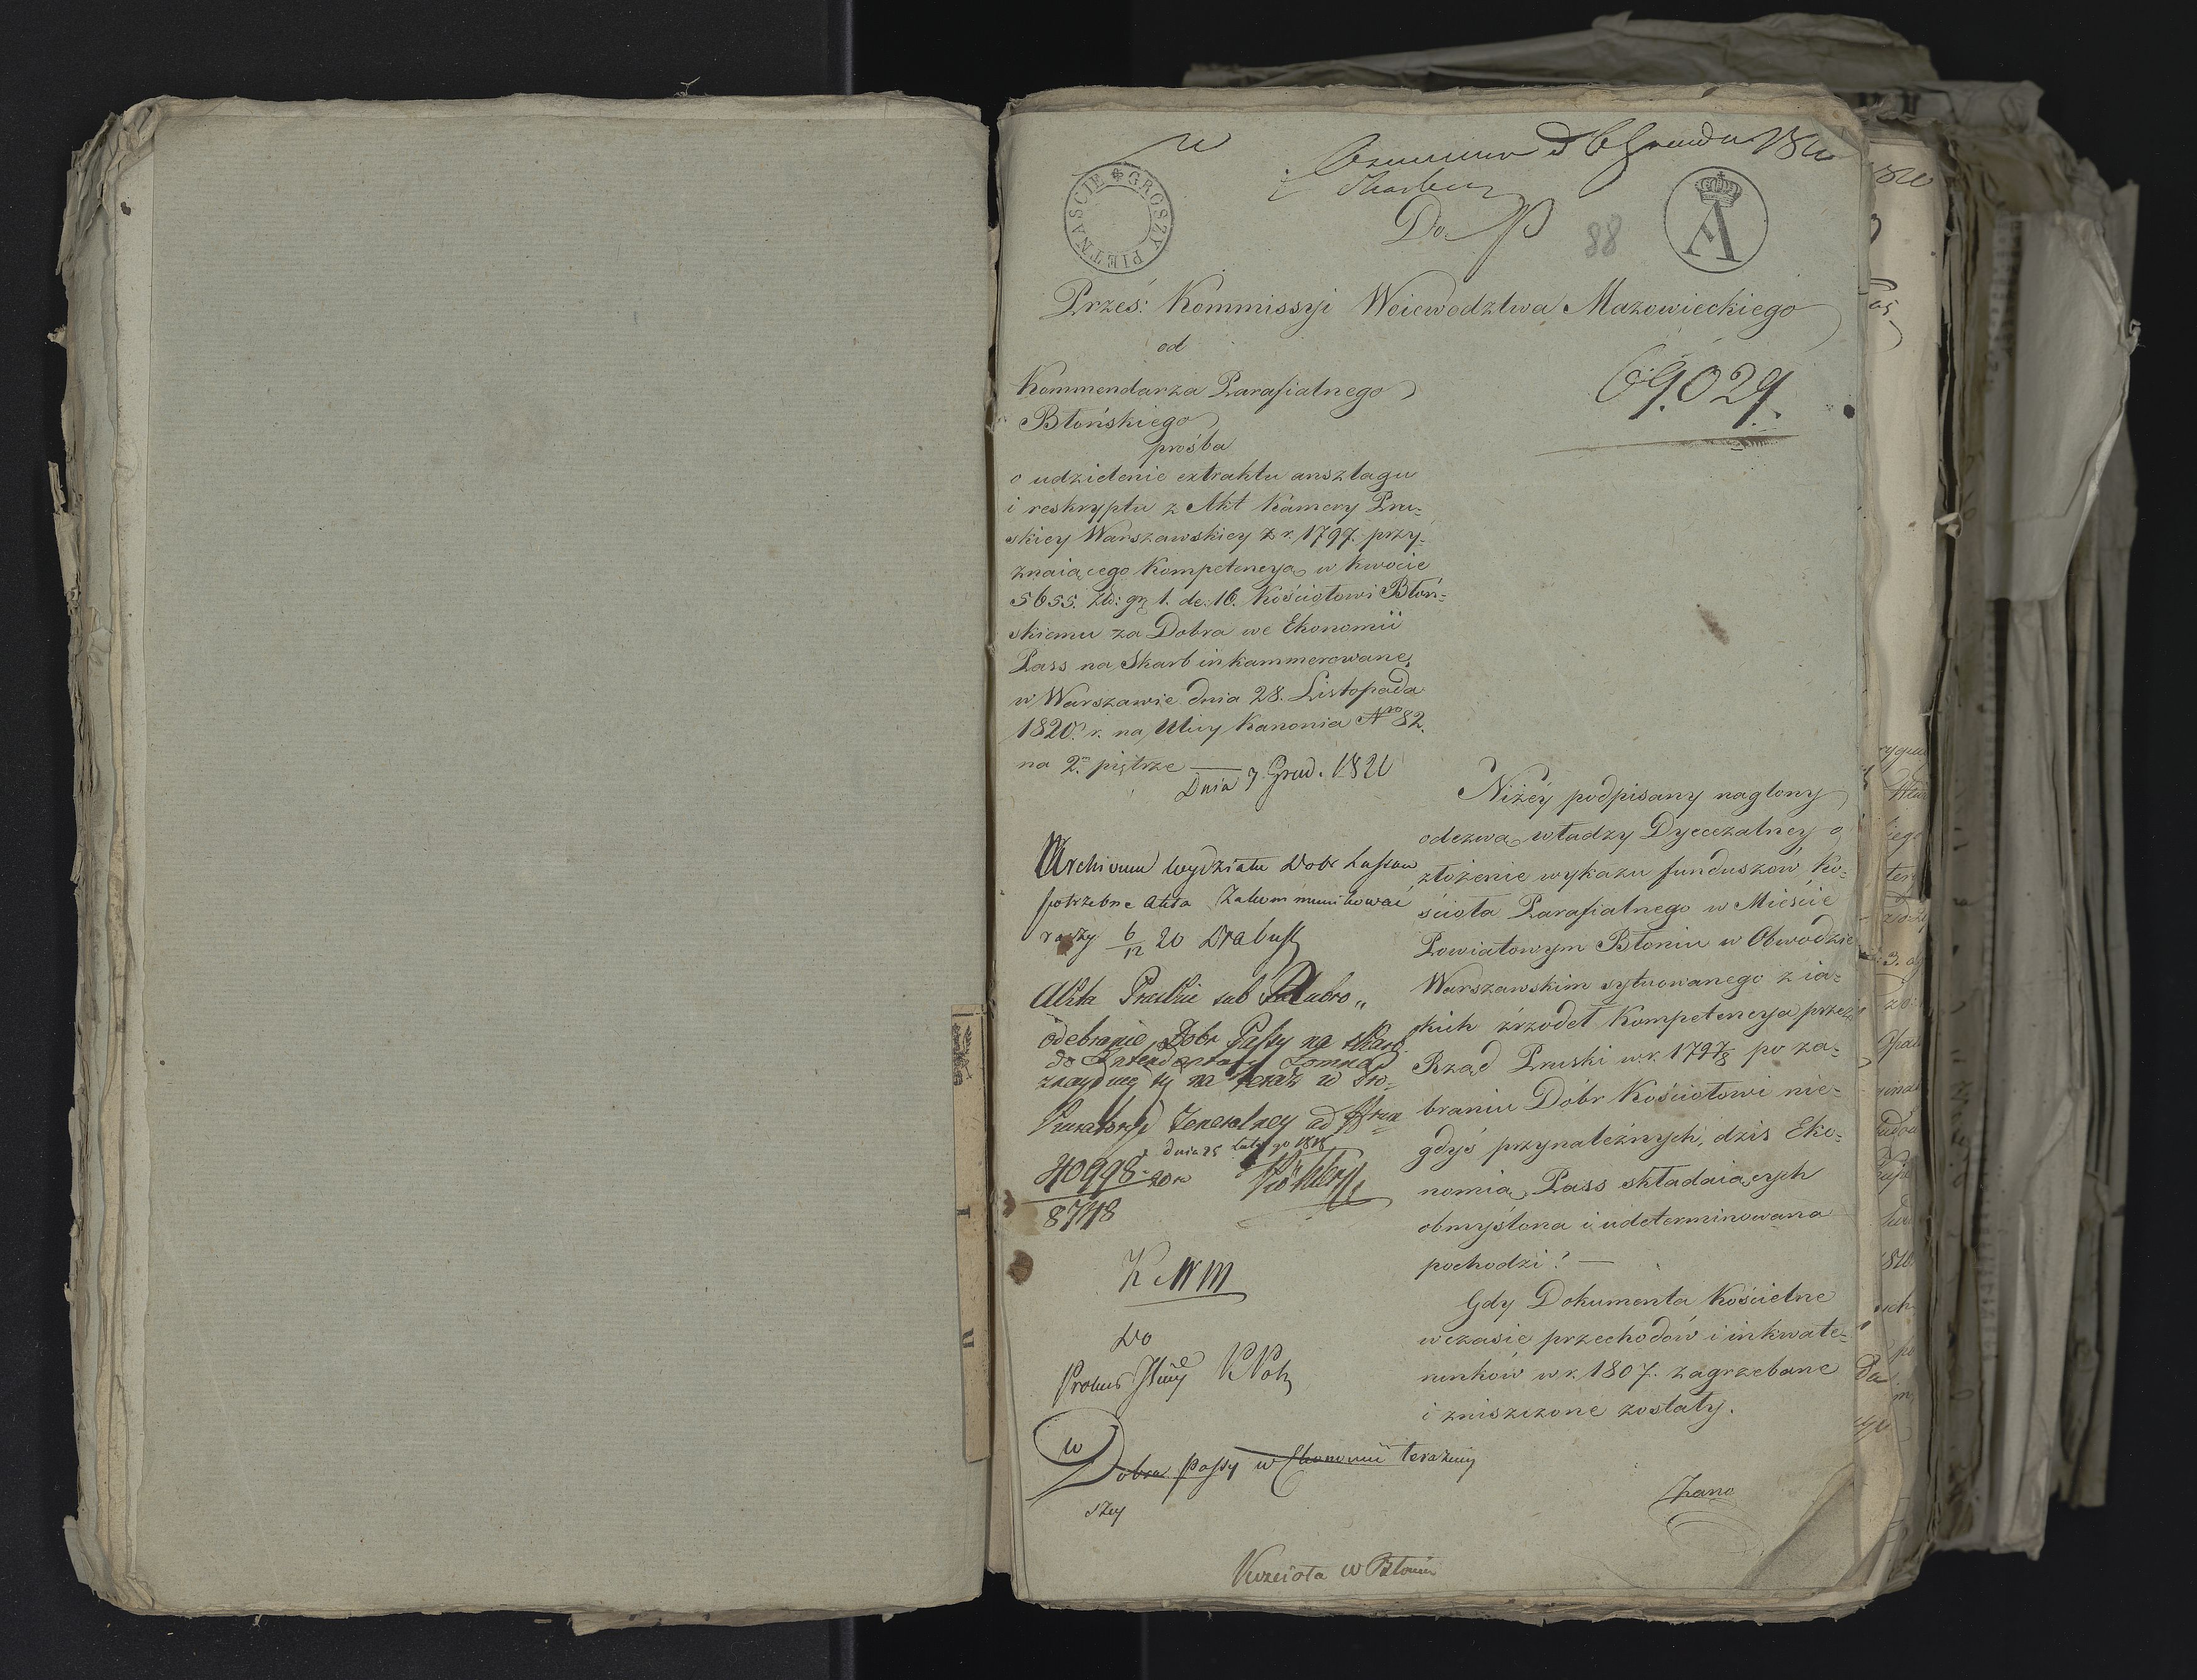 GROSZY PIETNAŚCIE
A
Skarbu
Do
88
Prześ: Kommissyi Woiewodztwa Mazowieckiego
od
69.029.
Kommendarza Parafialnego
Błońskiego
prośba
o udzielenie extraktu ansztagu
i reskryptu z Akt Kamery Pru-
skiey Warszawskiey z r. 1797. przy-
znaiącego Kompetencyą w kwocie
5655. Zło: gr 1. de: 16. Kościołowi Błoń-
skiemu za Dobra we Ekonomii
Pass na Skarb inkammerowane,
w Warszawie dnia 28. Listopada
1820. r. na Ulicy Kanonia Nro 82.
na 2m piętrze
Dnia 7 Grud. 1820
Archiwum wydziału Dobr
potrzebne akta zakommunikować
raczy 6/12 20
Akta Pruskie sub Rubro
odebranie Dobr Passy na skarb
znayduią się na teraz w Pro-
kuratoryi Jeneralney ad
40998
8748
K W M
Do
Dobra Passy w Ekonomii teraźniey
szey
Kościoła w Błoniu
Niżéy podpisany naglony
odezwą władzy Dyecezalney o
złożenie wykazu funduszów Ko-
ścioła Parafialnego w Mieście
Powiatowym Błoniu w Obwodzie
Warszawskim sytuowanego z ia-
kich źrzodeł Kompetencya przez
Rząd Pruski w r. 1797/8 po za-
braniu Dóbr Kościołowi nie-
gdyś przynależnych, dziś Eko-
nomią Pass składaiących
obmyślona i udeterminowana
pochodzi! —
Gdy Dokumenta Kościelne
w czasie przechodów i inkwate-
runków w r. 1807. zagrzebane
i zniszczone zostały.